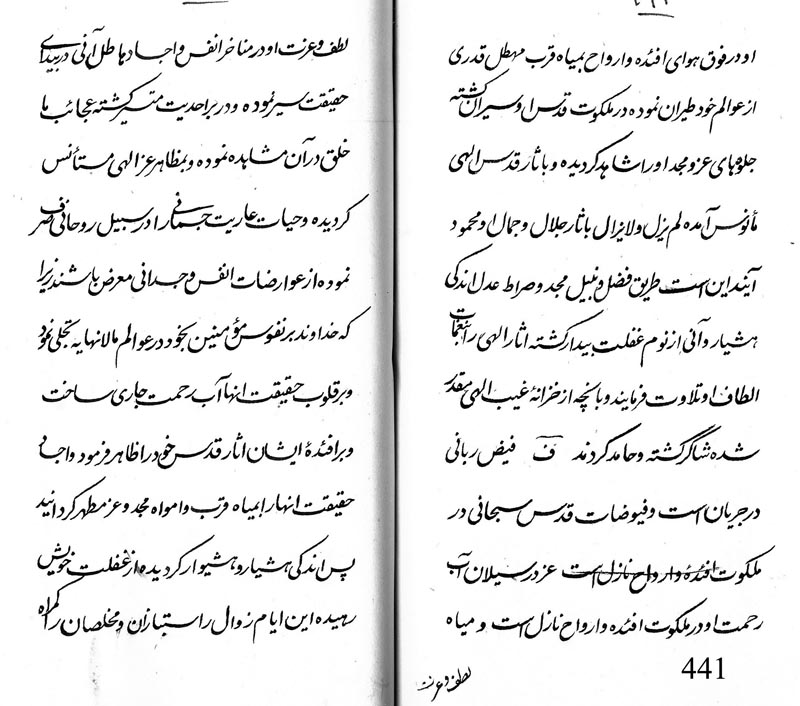 او در فوق هوای افئده و ارواح بمیاه قرب مهطل قدری
از عوالم خود طیران نموده در ملکوت قدس او سیران گشته
جلوه‌های عز و مجد او را شاهد کردیده و باثار قدس الهی
مأنوس آمده لم یزل و لایزال باثار جلال و جمال او محمود
آیند این است طریق فضل و نبیل مجد و صراط عدل اندکی
هشیار و آنی از نوم غفلت بیدار کشته اثار الهی را بنغمات
الطاف او تلاوت فرمایند و بانچه از خزانهٔ غیب الهی مقدر
شده شاکر گشته و حامد کردند ف فیض ربانی
در جریان است و فیوضات قدس سبحانی در
ملکوت افئده و ارواح نازل است عز در سیلان آب
رحمت او در ملکوت افئده و ارواح نازل است و میاه
لطف و عزت
441
لطف و عزت او در مناخر انفس و اجساد هاطل آنی در بیدای
حقیقت سیر نموده و در بر احدیت متسیر کشته عجائب ما
خلق در آن مشاهده نموده و بمظاهر عز الهی مستأنس
کردیده و حیات عاریت جسمانی را در سبیل روحانی صرف
نموده از عوارضات انفس و جدانی معرض باشند زیرا
که خداوند بر نفوس مؤمنین بخود در عوالم مالانهایه تجلی نمود
و بر قلوب حقیقت انها آب رحمت جاری ساخت
و بر افئدهٔ ایشان اثار قدس خود را ظاهر فرمود و اجساد
حقیقت انها را بمیاه قرب و امواه مجد و عز مطهر کردانید
پس اندکی هشیار و هشیوار کردیده از غفلت خویش
رهیده این ایام زوال راستبازان و مخلصان را گمراه